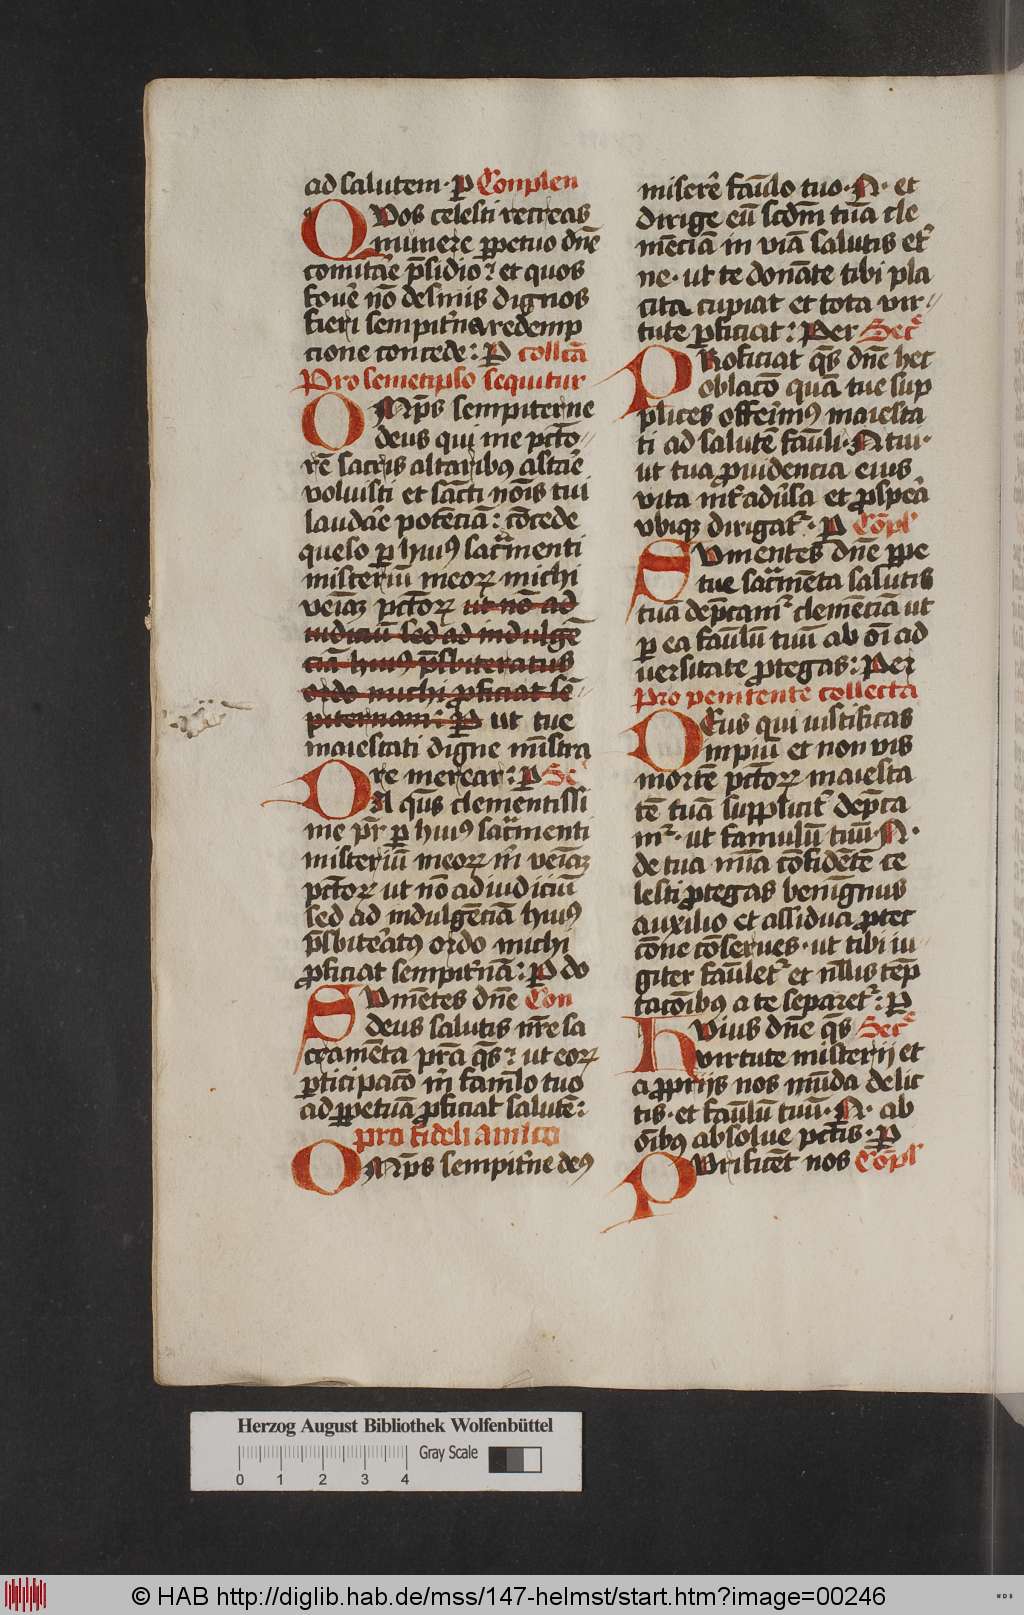 ad salutem · P Conplen
QVos celesti recreas
munere ꝑpetuo dn̄e
comitāe p̄sidio : et quos
fovē nō desinis dignos
fieri sempit̄na redemp
cione concede : P collcā
Pro semetipso sequitur
OMp̄s sempiterne
deus qui me pctō
rē sacris altaribꝰ astāē
voluisti et sācti nōis tui
laudāe potēciā : cōcede
queso ꝑ huiꝰ sacᵃmenti
misteriū meoꝝ michi
veiāꝫ pctōꝝ ut nō ad
iudiciū sed ad indulgē
ciā huiꝰ p̄sbiteratus
ordo michi ꝓficiat sē
piternam : P ut tue
maiestati digne mīstra
re merear : P Sc̄
DA qūs clementissi
me pr̄ ꝑ huiꝰ sacᵃmenti
misteriū meoꝝ m̄ veiāꝫ
pctōꝝ ut nō ad iudiciū
sed ad indulgēciā huiꝰ
p̄sbiteātꝰ ordo michi
ꝓficiat sempit̄nā : P do
SVmētes dn̄e Con
deus salutis nr̄e sa
cramēta pr̄a qūs : ut eoꝝ
ꝑticipacō m̄ famlo tuo
ad ꝑpetuā ꝓficiat salutē :
pro fideli amico
OMp̄s sempit̄ne deꝰ
miserē faūlo tuo · N · et
dirige eū scdm̄ tuā cle
mēciā in viā salutis et̄
ne · ut te donāte tibi pla
cita cupiat et tota vir
tute ꝑficiat : Per Secᵉ
PRoficiat qūs dn̄e hec
oblacō quā tue sup
plices offerimꝰ maiesta
ti ad salutē faūli · N tui ·
ut tua ꝓuidencia eius
vita int̄ adūsa et ꝓspeā
vbiqꝫ dirigat᷑ · P Cōpl
SVmentes dn̄e ꝑpe
tue sacᵃmēta salutis
tuā dep̄cam᷑ clemēciā ut
ꝑ ea faūlū tuū ab oī ad
uersitate ꝓtegas : Per
Pro penitente collecta
DEus qui iustificas
impiū et non vis
mortē pctōꝝ maiesta
tē tuā suppliciт᷑ dep̄ca
m᷑ · ut famulū tuū · N ·
de tua mīa cōfidētē ce
lesti ꝓtegas benignus
auxilio et assidua ꝓtec
cōne cōserues · ut tibi iu
giter faūlet᷑ et nllis tēp
tacōibꝰ a te separet᷑ : P
HVius dn̄e qūs Secᵉ
virtute misterij et
a ꝓprijs nos mūda delic
tis · et faūlū tuū · N · ab
ōibꝰ absolue pctīs · P
PVrificēt nos Cōpl
Herzog August Bibliothek Wolfenbüttel
Gray Scale
0 1 2 3 4
© HAB http://diglib.hab.de/mss/147-helmst/start.htm?image=00246